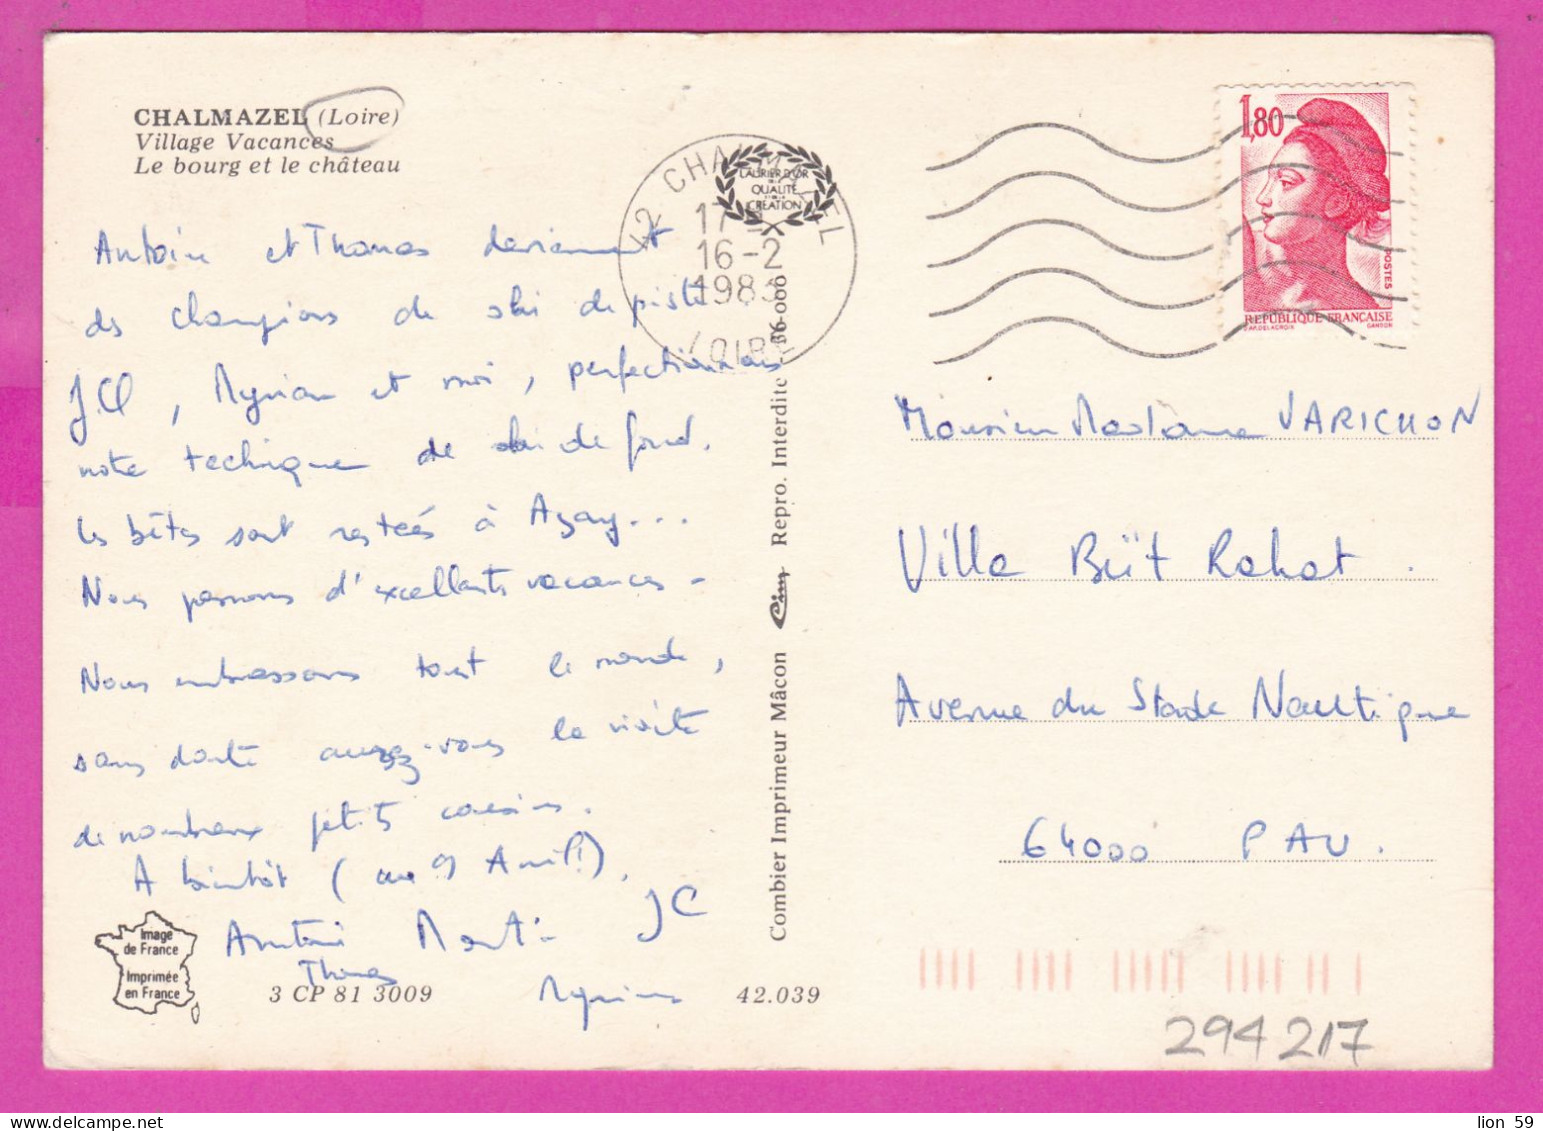 CHALMAZEL (Loire)
Village Vacances
Le bourg et le château
Antoine et Thomas deviennent
des champions de ski de piste
J.C, Myriam et moi, perfectionnons
notre technique de ski de fond.
Les bêtes sont restées à Azay...
Nous passons d'excellentes vacances -
Nous embrassons tout le monde,
sans doute aurez-vous la visite
de nombreux petits cousins.
A bientôt (au 9 Avril!).
Antoine Martine JC
Thomas
Myriam
Image
de France
Imprimée
en France
3 CP 81 3009
42.039
Combier Imprimeur Mâcon Cim Repro. Interdite 56-000
42 CHALMAZEL
17
16-2
1983
LOIRE
LAURIER D'OR
DE LA
QUALITÉ
CRÉATION
1,80
POSTES
RÉPUBLIQUE FRANÇAISE
D'AP. DELACROIX GANDON
Monsieur Madame VARICHON
Villa Büt Rahat.
Avenue du Stade Nautique
64000 PAU.
294217
lion 59